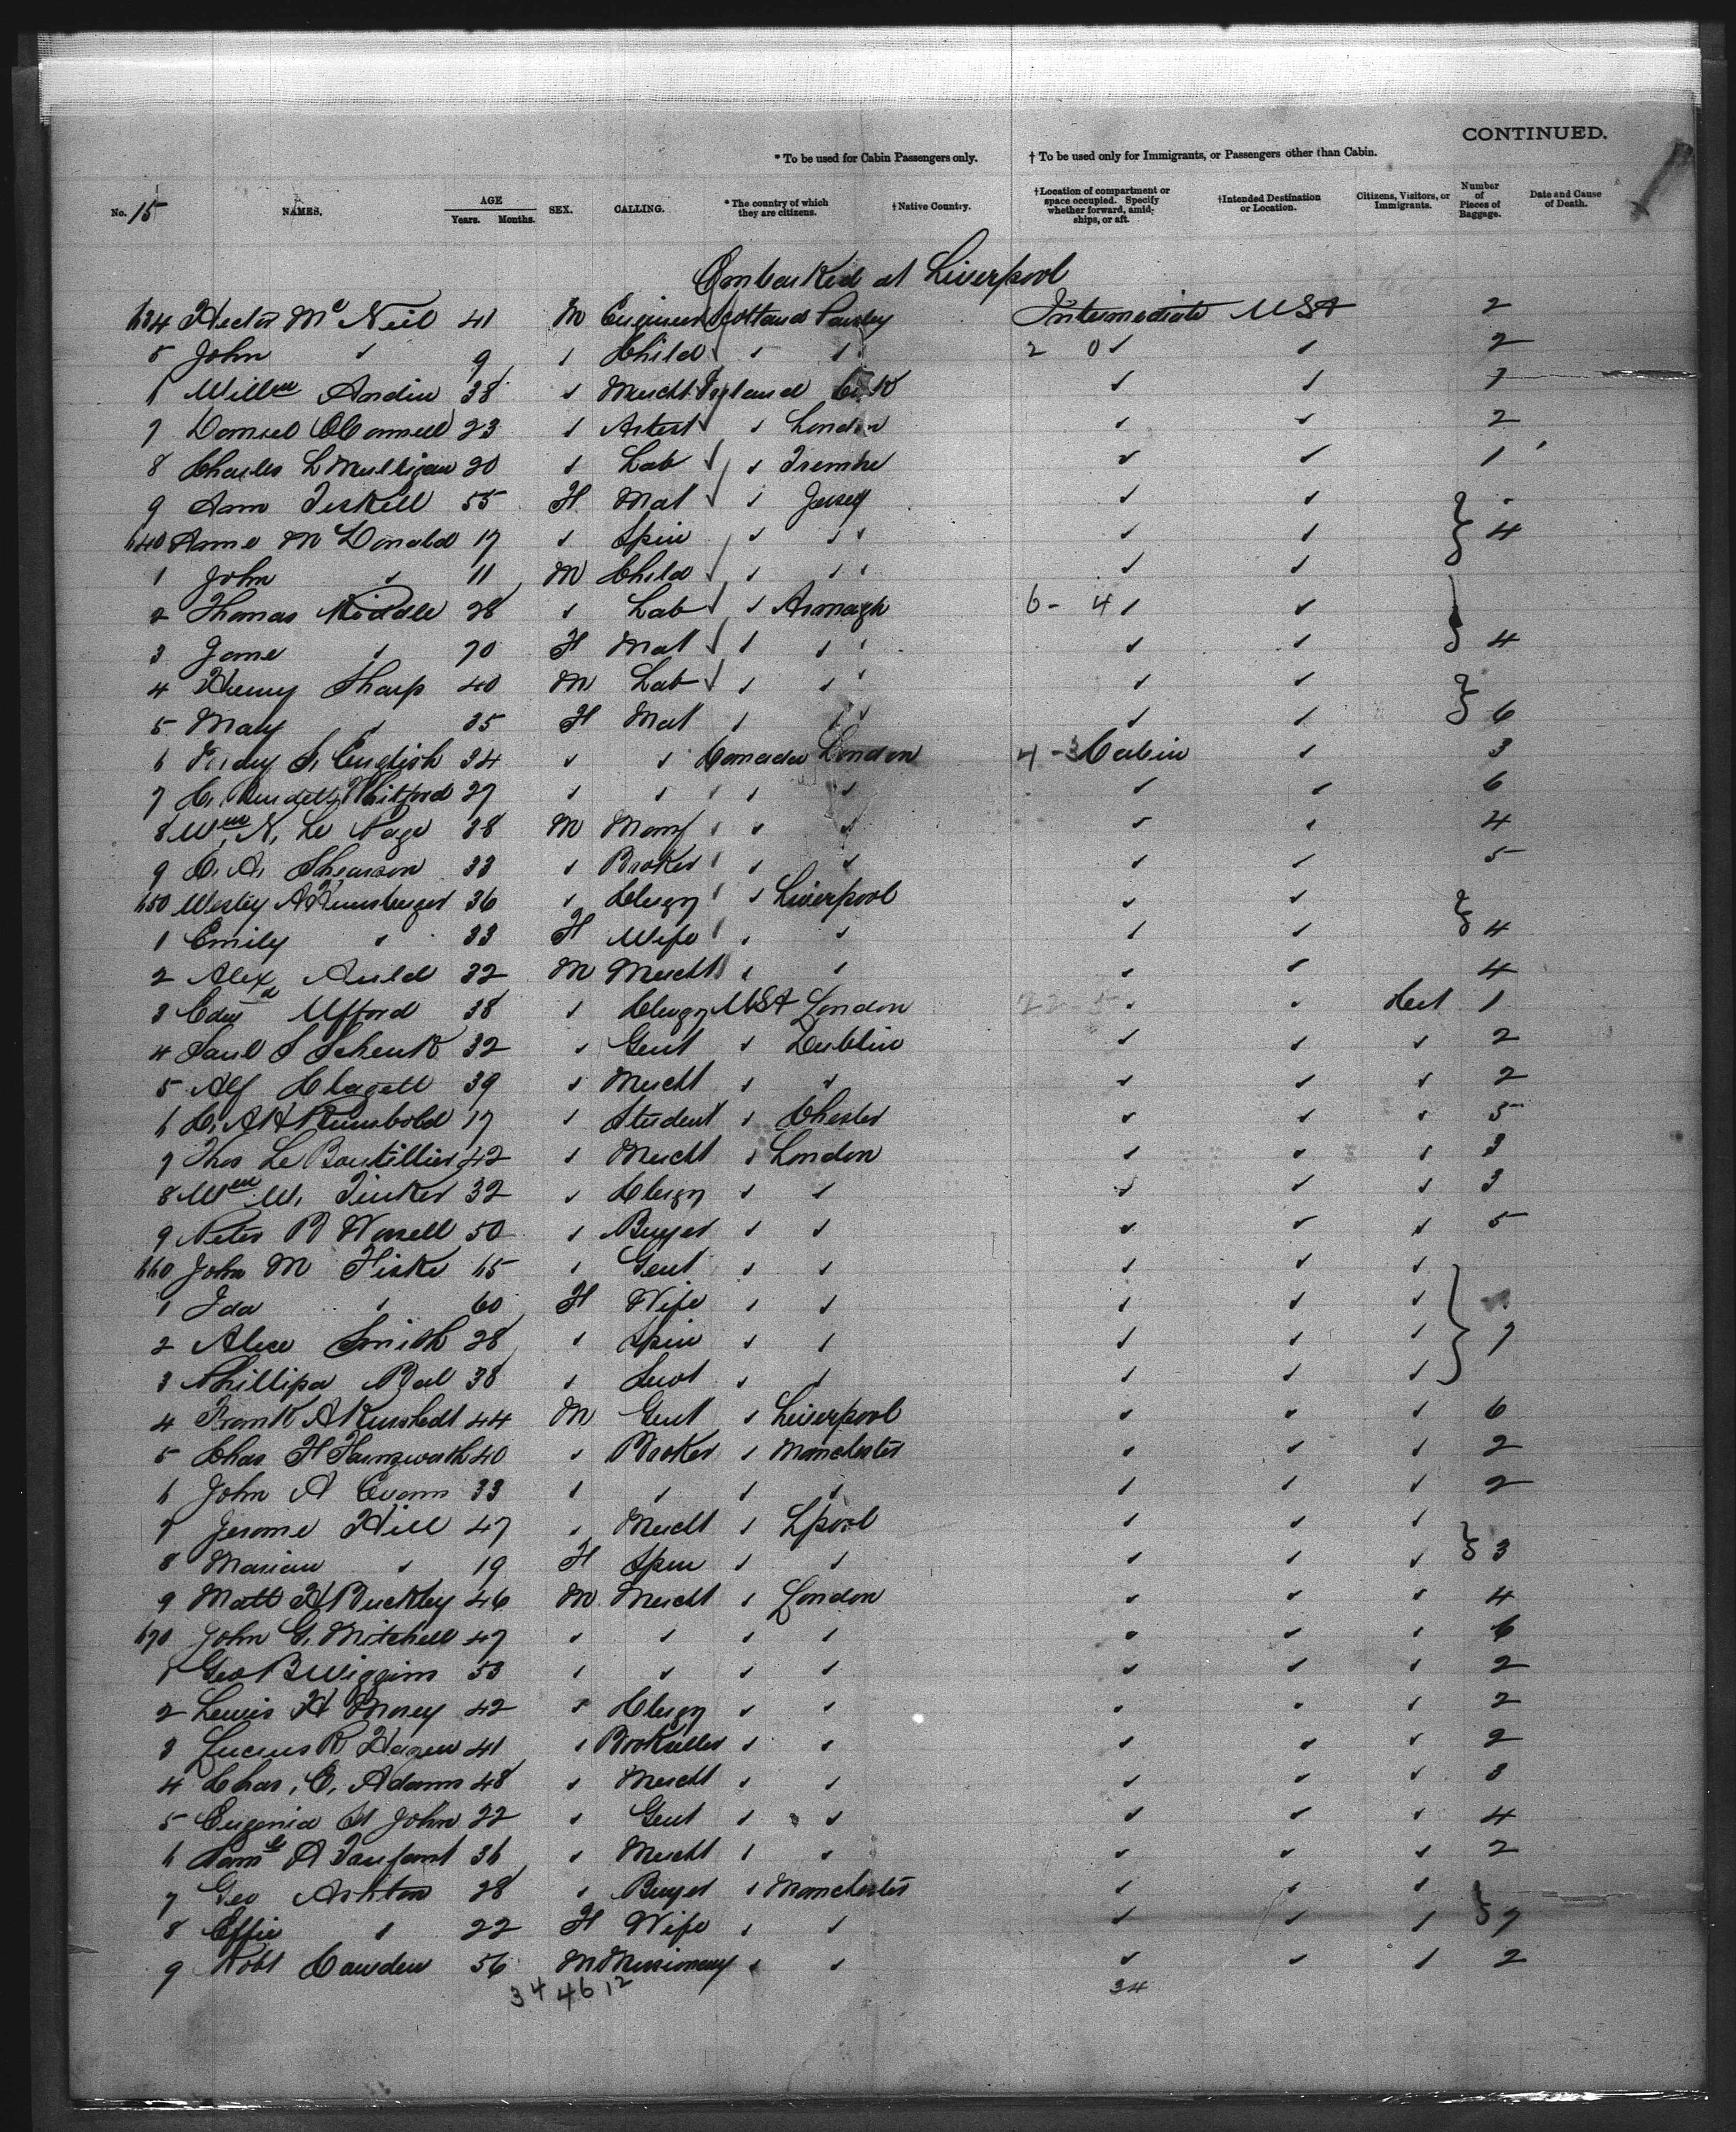 CONTINUED.
* To be used for Cabin Passengers only. † To be used only for Immigrants, or Passengers other than Cabin.
No. 15 NAMES. AGE Years. Months. SEX. CALLING. * The country of which they are citizens. † Native Country. † Location of compartment or space occupied. Specify whether forward, amidships, or aft. † Intended Destination or Location. Citizens, Visitors, or Immigrants. Number of Pieces of Baggage. Date and Cause of Death.
Embarked at Liverpool
634 Hector Mc Neil 41 M Engineer Scotland Paisley Intermediate USA 2
5 John " 9 " Child " " 2 0 " " 2
6 Willm 38 " Mercht England " " 1
7 Daniel OConnell 23 " Artist " London " " 2
8 Charles L Mulligan 20 " Lab " " " 1
9 Ann 55 F Mat " Jersey " "
640 Anne McDonald 17 " Spin " " " " 4
1 John " 11 M Child " " " "
2 Thomas Riddle 28 " Lab " Armagh 6 - 4 " "
3 Jane " 70 F Mat " " " " 4
4 Henry Sharp 40 M Lab " " " "
5 Mary " 35 F Mat " " " " 6
6 S. English 34 " " Canada London 4 - 3 Cabin " 3
7 C. Whitford 27 " " " " " " 6
8 Wm N. Le Page 38 M Manf " " " " 4
9 C. A. Shearson 33 " Broker " " " " 5
650 Wesley A 36 " Clergy " Liverpool " "
1 Emily " 33 F Wife " " " " 4
2 Alex Auld 32 M Mercht " " " " 4
3 Edwd Ufford 38 " Clergy USA London " " Cit 1
4 Paul S Schenk 32 " Gent " Dublin " " " 2
5 Alf Clagett 39 " Mercht " " " " " 2
6 C. A H Rumbold 17 " Student " Chester " " " 5
7 Thos Le Boutillier 42 " Mercht " London " " " 3
8 Wm W. Tinker 32 " Clergy " " " " " 3
9 Peter B Worrell 50 " Buyer " " " " " 5
660 John M Fiske 65 " Gent " " " " "
1 Ida " 60 F Wife " " " " "
2 Alice Smith 28 " Spin " " " " " 7
3 Phillipa Bal 38 " Servt " " " " "
4 Frank A 44 M Gent " Liverpool " " " 6
5 Chas H Farnsworth 40 " Broker " Manchester " " " 2
6 John A Evans 33 " " " " " " " 2
7 Jerome Hill 47 " Mercht " Lpool " " "
8 Marian " 19 F Spin " " " " " 3
9 Matt H Buckley 46 M Mercht " London " " " 4
670 John G. Mitchell 47 " " " " " " " 6
1 Geo B Wiggins 53 " " " " " " " 2
2 Lewis H Morey 42 " Clergy " " " " " 2
3 Lucius R Hazen 41 " Bookseller " " " " " 2
4 Chas. E. Adams 48 " Mercht " " " " " 3
5 Eugenia St John 22 " Gent " " " " " 4
6 Saml A 36 " Mercht " " " " " 2
7 Geo Ashton 28 " Buyer " Manchester " " "
8 Effie " 22 F Wife " " " " " 7
9 Robt Camden 56 M Missionary " " " " " 2
34 46 12 34